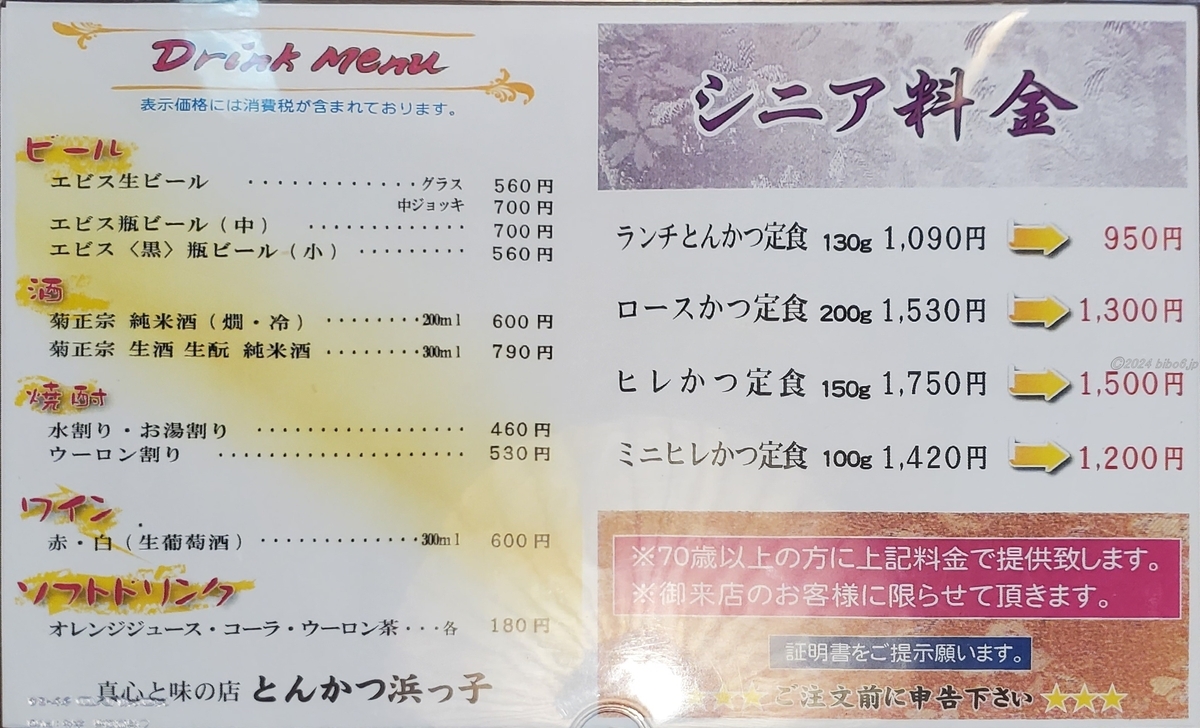 Drink Menu
表示価格には消費税が含まれております。
ビール
エビス生ビール ・・・・・・・・・・・・・グラス 560円
中ジョッキ 700円
エビス瓶ビール(中) ・・・・・・・・・・・・・ 700円
エビス〈黒〉瓶ビール(小) ・・・・・・・・・ 560円
酒
菊正宗 純米酒(燗・冷) ・・・・・・・・200ml 600円
菊正宗 生酒 生酛 純米酒 ・・・・・・・・300ml 790円
焼酎
水割り・お湯割り ・・・・・・・・・・・・・・・・・・ 460円
ウーロン割り ・・・・・・・・・・・・・・・・・・・・・ 530円
ワイン
赤・白(生葡萄酒) ・・・・・・・・・・・・・・300ml 600円
ソフトドリンク
オレンジジュース・コーラ・ウーロン茶・・・各 180円
真心と味の店 とんかつ浜っ子
シニア料金
ランチとんかつ定食 130g 1,090円 950円
ロースかつ定食 200g 1,530円 1,300円
ヒレかつ定食 150g 1,750円 1,500円
ミニヒレかつ定食 100g 1,420円 1,200円
※70歳以上の方に上記料金で提供致します。
※御来店のお客様に限らせて頂きます。
証明書をご提示願います。
★★★ご注文前に申告下さい★★★
©2024 bibo6.jp